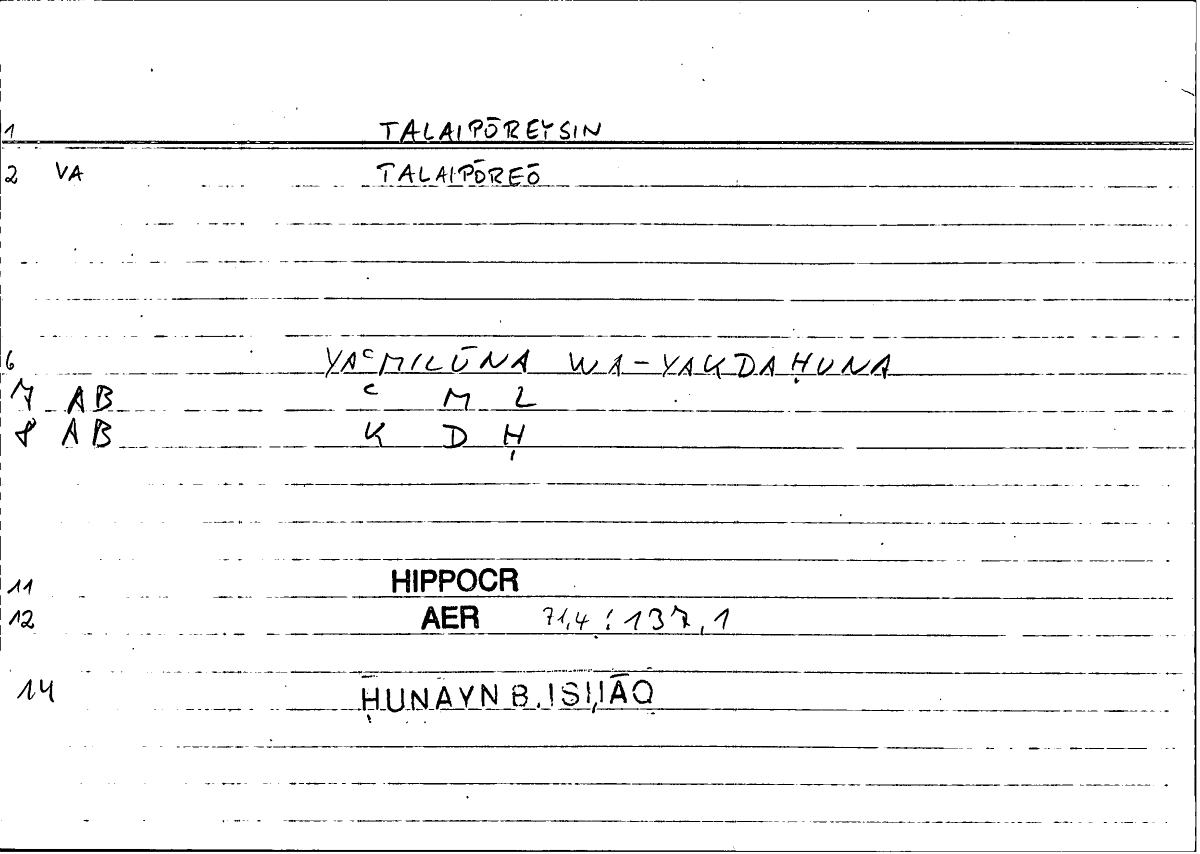 1 TALAIPŌREYSIN
2 VA TALAIPŌREŌ
6 YAᶜMILŪNA WA-YAKDAḤUNA
7 AB ᶜ M L
8 AB K D Ḥ
11 HIPPOCR
12 AER 71,4 : 137,1
14 ḤUNAYN B. ISḤĀQ